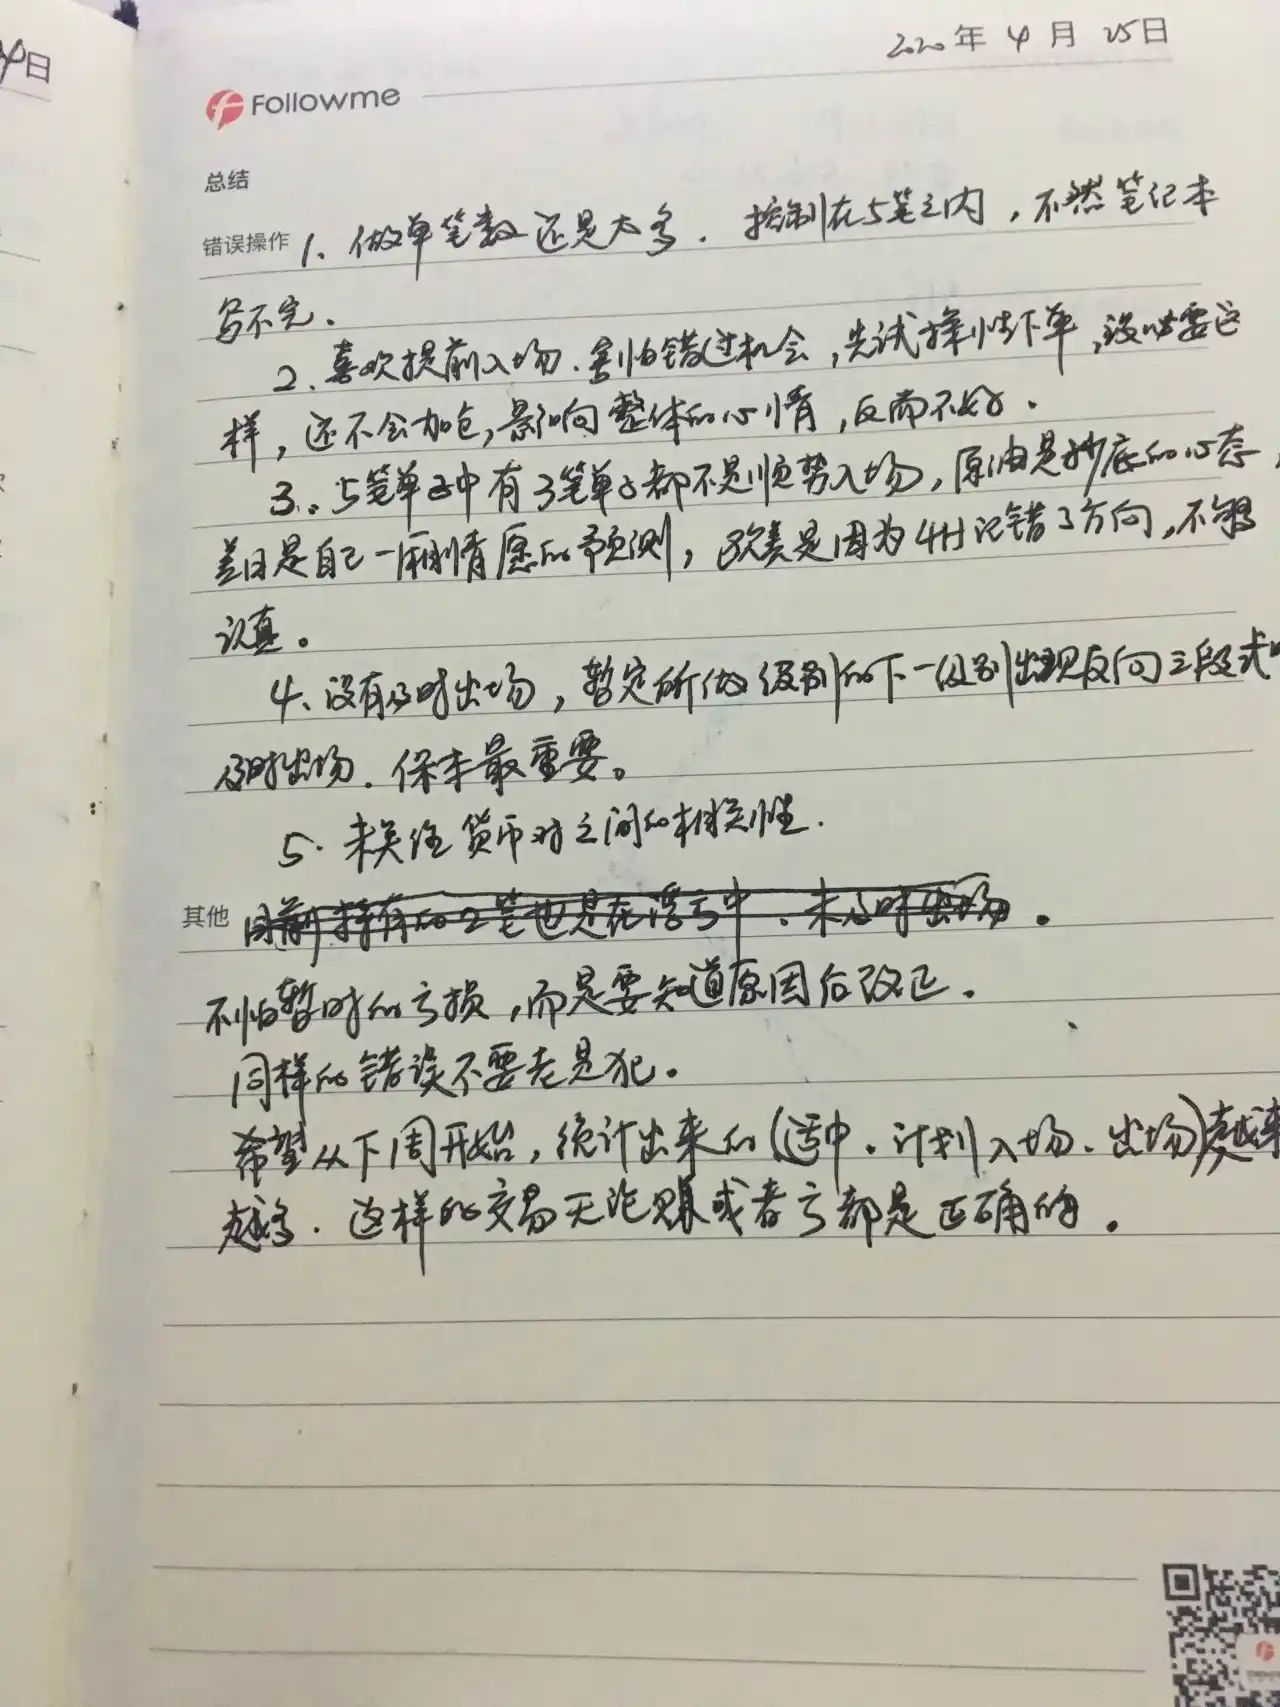 日
2020年4月25日
Followme
总结
错误操作 1、做单笔数还是太多．控制在5笔之内，不然笔记本
写不完．
2、喜欢提前入场．害怕错过机会，先试探性下单，没必要这
样，还不会加仓，影响整体的心情，反而不好．
3.。5笔单子中有3笔单子都不是顺势入场，原油是抄底的心态，
美日是自己一厢情愿的预测，欧美是因为4H记错了方向，不够
认真。
4、没有及时出场，暂定所做级别的下一级别出现反向三段式
及时出场．保本最重要。
5．未关注货币对之间的相关性．
其他 目前持有的2笔也是在浮亏中．未及时出场。
不怕暂时的亏损，而是要知道原因后改正．
同样的错误不要老是犯．
希望从下周开始，统计出来的(适中．计划入场．出场)越来
越多．这样的交易无论赚或者亏都是正确的．